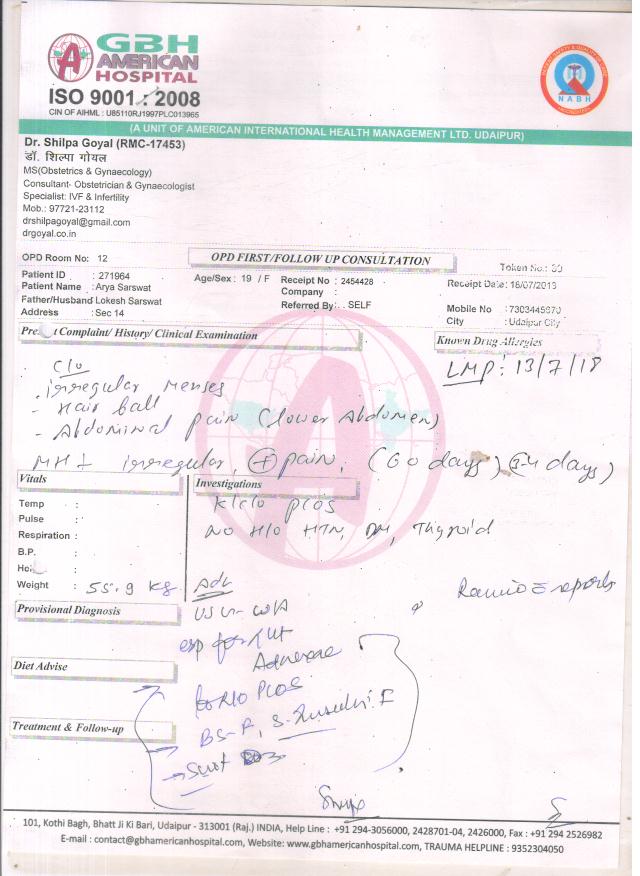 GBH
AMERICAN
HOSPITAL
ISO 9001 : 2008
CIN OF AIHML : U85110RJ1997PLC013965
NABH
(A UNIT OF AMERICAN INTERNATIONAL HEALTH MANAGEMENT LTD. UDAIPUR)
Dr. Shilpa Goyal (RMC-17453)
डॉ. शिल्पा गोयल
MS(Obstetrics & Gynaecology)
Consultant- Obstetrician & Gynaecologist
Specialist: IVF & Infertility
Mob.: 97721-23112
drshilpagoyal@gmail.com
drgoyal.co.in
OPD Room No: 12
OPD FIRST/FOLLOW UP CONSULTATION
Token No.: 30
Patient ID : 271964
Age/Sex : 19 / F
Receipt No : 2454428
Receipt Date:
Patient Name : Arya Sarswat
Company :
Father/Husband Lokesh Sarswat
Referred By: . SELF
Mobile No
Address : Sec 14
City : Udaipur City
Present Complaint/ History/ Clinical Examination
Known Drug Allergies
C/o
LMP : 13/7/18
. irregular menses
- Hair ball
- Abdominal pain (lower Abdomen)
MH I irregular, + pain, (60 days) (3-4 days)
Vitals
Investigations
K/c/o PCOS
Temp :
NO H/o HTN, DM, Thyroid
Pulse :
Respiration :
B.P. :
Weight : 55.9 kg
Adv
reports
Provisional Diagnosis
USG - W/A
esp for
Diet Advise
for R/O PCOS
BS-F, S. Insulin F
Treatment & Follow-up
101, Kothi Bagh, Bhatt Ji Ki Bari, Udaipur - 313001 (Raj.) INDIA, Help Line : +91 294-3056000, 2428701-04, 2426000, Fax : +91 294 2526982
E-mail : contact@gbhamericanhospital.com, Website: www.gbhamericanhospital.com, TRAUMA HELPLINE : 9352304050